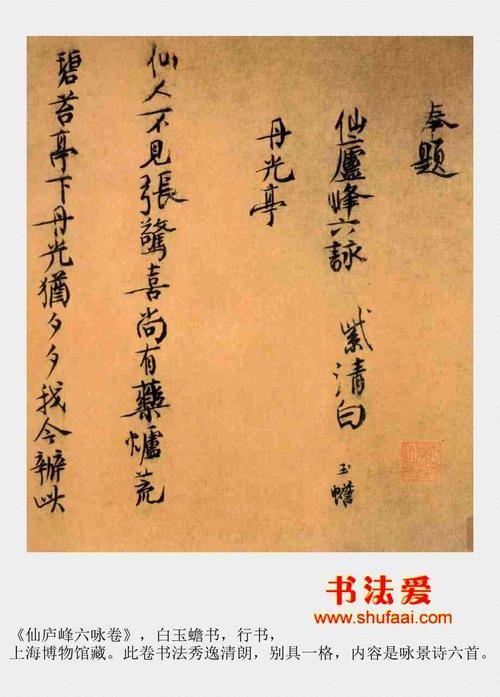 奉題
仙廬峰六詠 紫清白玉蟾
丹光亭
仙人不見張驚喜尚有藥爐荒
碧苔亭下丹光猶夕夕我今辦此
书法爱
www.shufaai.com
《仙庐峰六咏卷》，白玉蟾书，行书，
上海博物馆藏。此卷书法秀逸清朗，别具一格，内容是咏景诗六首。